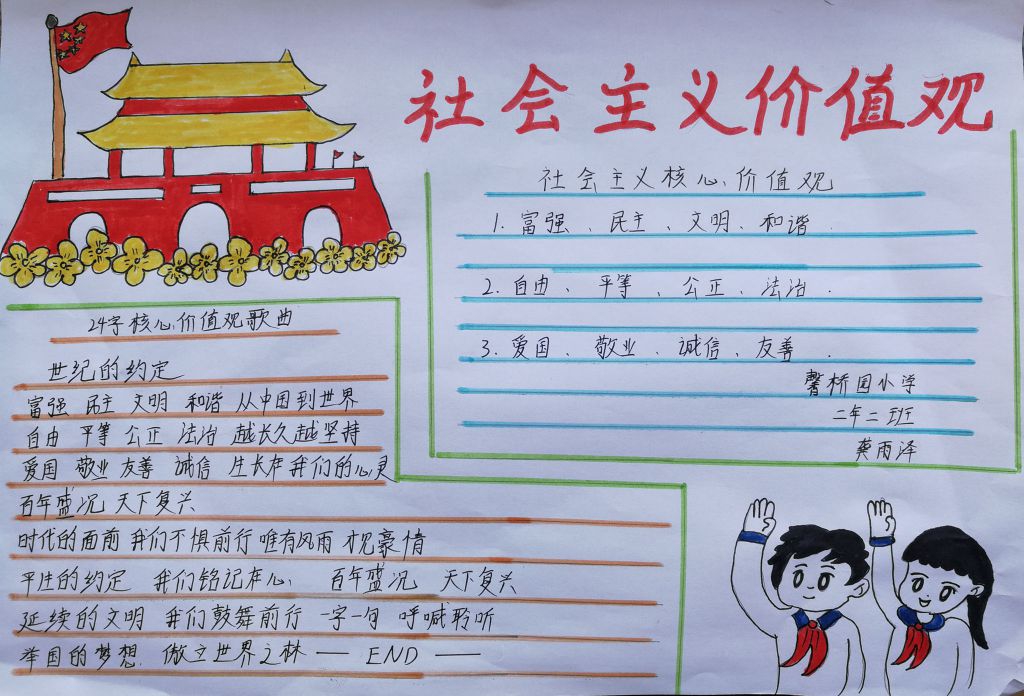 社会主义价值观
社会主义核心价值观
1. 富强、民主、文明、和谐.
2. 自由、平等、公正、法治.
3. 爱国、敬业、诚信、友善.
馨桥国小学
二年二班
龚雨泽
24字核心价值观歌曲
世纪的约定
富强 民主 文明 和谐 从中国到世界
自由 平等 公正 法治 越长久越坚持
爱国 敬业 友善 诚信 生长在我们的心灵
百年盛况 天下复兴
时代的面前 我们不惧前行 唯有风雨 忱豪情
平生的约定 我们铭记在心 百年盛况 天下复兴
延续的文明 我们鼓舞前行 一字一句 呼喊聆听
举国的梦想 傲立世界之林 — END —